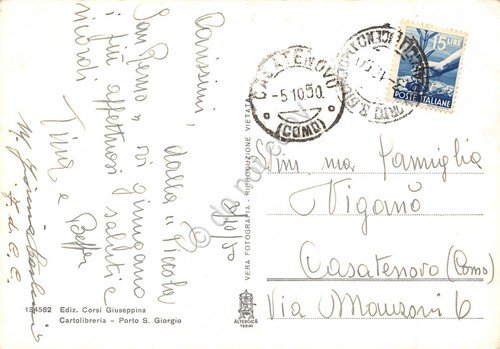 Carissimi,
dalla "Piccola
San Remo" vi giungano
i più affettuosi saluti e
ricordi
Tina e Beppe
134582 Ediz. Corsi Giuseppina
Cartolibreria - Porto S. Giorgio
VERA FOTOGRAFIA - RIPRODUZIONE VIETATA
ALTEROCCA
TERNI
CASATENOVO
-5.10.50.
(COMO)
15 LIRE
POSTE ITALIANE
Fam. ma Famiglia
Viganò
Casatenovo (Como)
Via Manzoni 6